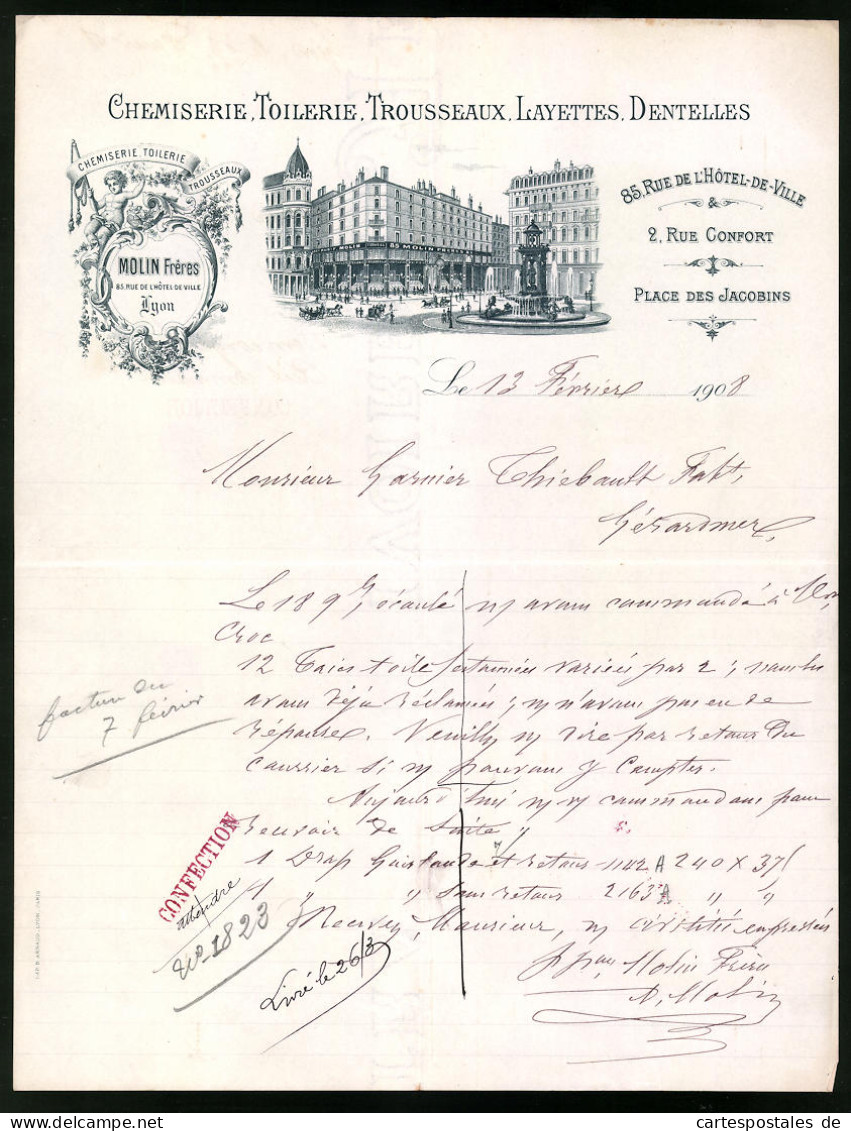 CHEMISERIE, TOILERIE, TROUSSEAUX, LAYETTES, DENTELLES
CHEMISERIE, TOILERIE
TROUSSEAUX
MOLIN Frères
85, RUE DE L'HÔTEL DE VILLE
Lyon
85, RUE DE L'HÔTEL-DE-VILLE
&
2, RUE CONFORT
PLACE DES JACOBINS
Le 13 Février 1908
Monsieur Garnier Thiebault Fabt,
Gérardmer,
Le 18 9bre écoulé ns avons commandé à Mr
Croc
12 Taies toile variées par 2, nous les
avons déjà réclamées, ns n'avons pas eu de
réponse. Veuillez ns dire par retour du
courrier si ns pouvons y compter.
Aujourd'hui ns vs commandons pour
recevoir de suite
1 Drap Guirlande et retours 1142 A 240 X 375
1 " " sans retour 2163 A " "
Recevez, Monsieur, ns civilités empressées
ppon Molin Frères
A. Molin
facture du
7 février
CONFECTION
attendre
No 1823
Livré le 26/3
cartespostales de